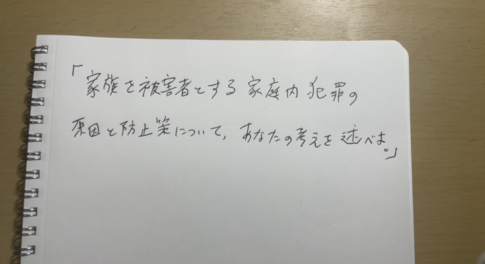 「家族を被害者とする家庭内犯罪の
原因と防止策について、あなたの考えを述べよ。」